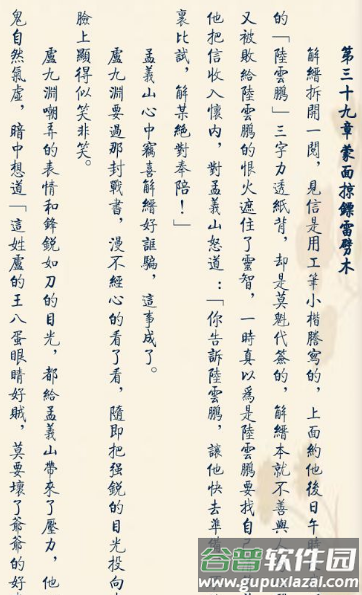 第三十九章蒙面掠鏢雷劈木
解縉拆開一閱，見信是用工筆小楷謄寫的，上面約他後日午時
的「陸雲鵬」三字力透紙背，却是莫魁代簽的，解縉本就不善與
又被敗給陸雲鵬的恨火遮住了靈智，一時真以爲是陸雲鵬要找自己
他把信收入懷内，對孟義山怒道：「你告訴陸雲鵬，讓他快去準備
裏比試，解某絕對奉陪！」
孟義山心中竊喜解縉好誰騙，這事成了。
盧九淵要過那封戰書，漫不經心的看了看，隨即把强鋭的目光投向
臉上顯得似笑非笑。
盧九淵嘲弄的表情和鋒鋭如刀的目光，都給孟義山帶來了壓力，他
鬼自然氣虛，暗中想道「這姓盧的王八蛋眼睛好賊，莫要壞了爺爺的好
谷普软件园
www.gupuxlazal.com